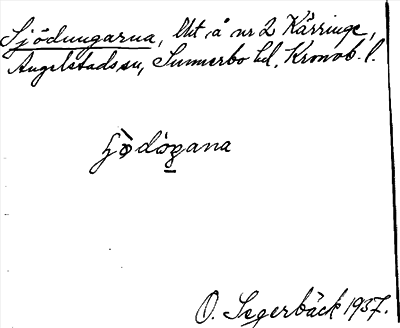 Sjödungarna, Utt å nr 2 Kärringe,
Angelstads sn, Sunnerbo hd, Kronob. l.
ɧὸdóᶇana
O. Segerbäck 1937.